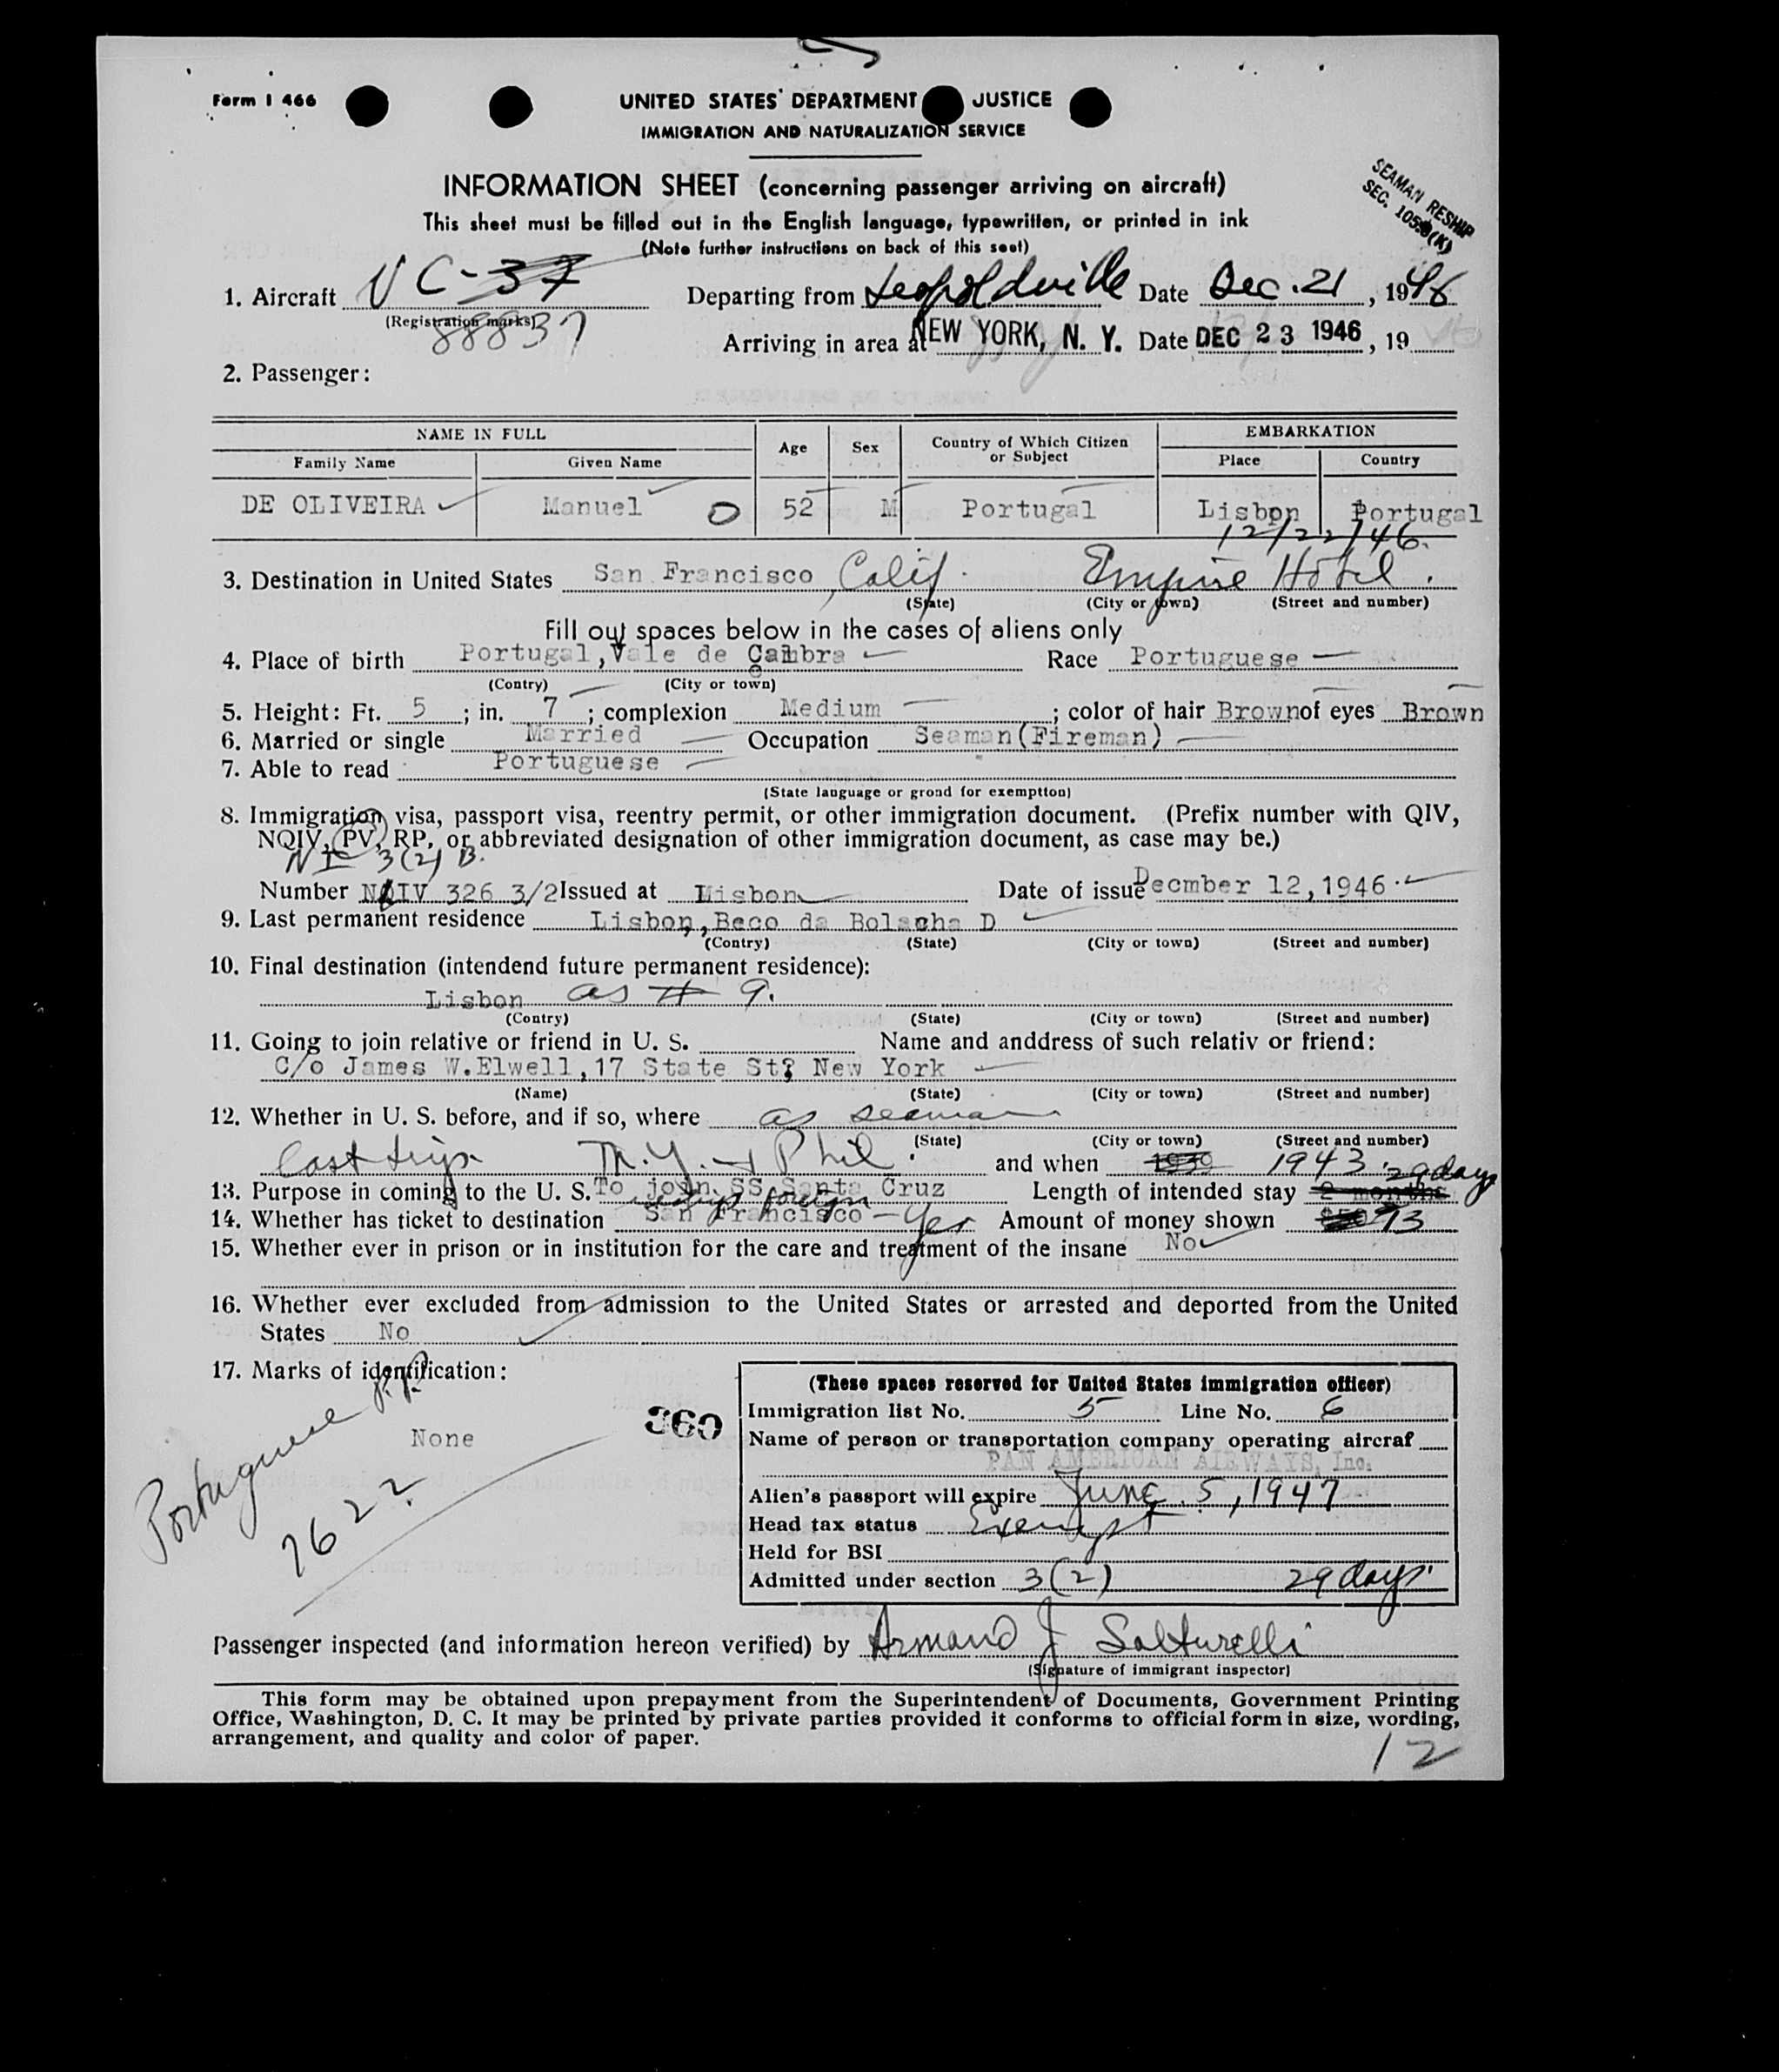 Form I 466
UNITED STATES DEPARTMENT JUSTICE
IMMIGRATION AND NATURALIZATION SERVICE
INFORMATION SHEET (concerning passenger arriving on aircraft)
SEAMAN RESHIP
SEC. 105.3(K)
This sheet must be filled out in the English language, typewritten, or printed in ink
(Note further instructions on back of this seet)
1. Aircraft NC-37 Departing from Leopoldville Date Dec. 21, 1946
(Registration marks)
88837
Arriving in area at NEW YORK, N. Y. Date DEC 23 1946, 19
2. Passenger:
NAME IN FULL Age Sex Country of Which Citizen or Subject EMBARKATION
Family Name Given Name Place Country
DE OLIVEIRA Manuel 52 M Portugal Lisbon Portugal
12/22/46.
3. Destination in United States San Francisco, Calif. Empire Hotel.
(State) (City or town) (Street and number)
Fill out spaces below in the cases of aliens only
4. Place of birth Portugal, Vale de Cambra Race Portuguese
(Contry) (City or town)
5. Height: Ft. 5 ; in. 7 ; complexion Medium ; color of hair Brown of eyes Brown
6. Married or single Married Occupation Seaman(Fireman)
7. Able to read Portuguese
(State language or grond for exemptton)
8. Immigration visa, passport visa, reentry permit, or other immigration document. (Prefix number with QIV,
NQIV, PV, RP, or abbreviated designation of other immigration document, as case may be.)
NI 3(2) B.
Number NQIV 326 3/2 Issued at Lisbon Date of issue Decmber 12,1946.
9. Last permanent residence Lisbon, Beco da Bolacha D
(Contry) (State) (City or town) (Street and number)
10. Final destination (intendend future permanent residence):
Lisbon as # 9.
(Contry) (State) (City or town) (Street and number)
11. Going to join relative or friend in U. S. Name and anddress of such relativ or friend:
C/o James W.Elwell,17 State St? New York
(Name) (State) (City or town) (Street and number)
12. Whether in U. S. before, and if so, where as seaman
(State) (City or town) (Street and number)
Last trip N.Y. + Phil. and when 1939 1943
29 days
13. Purpose in coming to the U. S. To join SS Santa Cruz Length of intended stay 2 months
foreign
14. Whether has ticket to destination San Francisco - Yes Amount of money shown $50 73
15. Whether ever in prison or in institution for the care and treatment of the insane No
16. Whether ever excluded from admission to the United States or arrested and deported from the United
States No
17. Marks of identification:
Portuguese P.P.
None
2622
360
(These spaces reserved for United States immigration officer)
Immigration list No. 5 Line No. 6
Name of person or transportation company operating aircraf
PAN AMERICAN AIRWAYS, Inc.
Alien's passport will expire June 5, 1947
Head tax status Exempt
Held for BSI
Admitted under section 3(2) 29 days.
Passenger inspected (and information hereon verified) by Armand J Salturelli
(Signature of immigrant inspector)
This form may be obtained upon prepayment from the Superintendent of Documents, Government Printing
Office, Washington, D. C. It may be printed by private parties provided it conforms to official form in size, wording,
arrangement, and quality and color of paper.
12